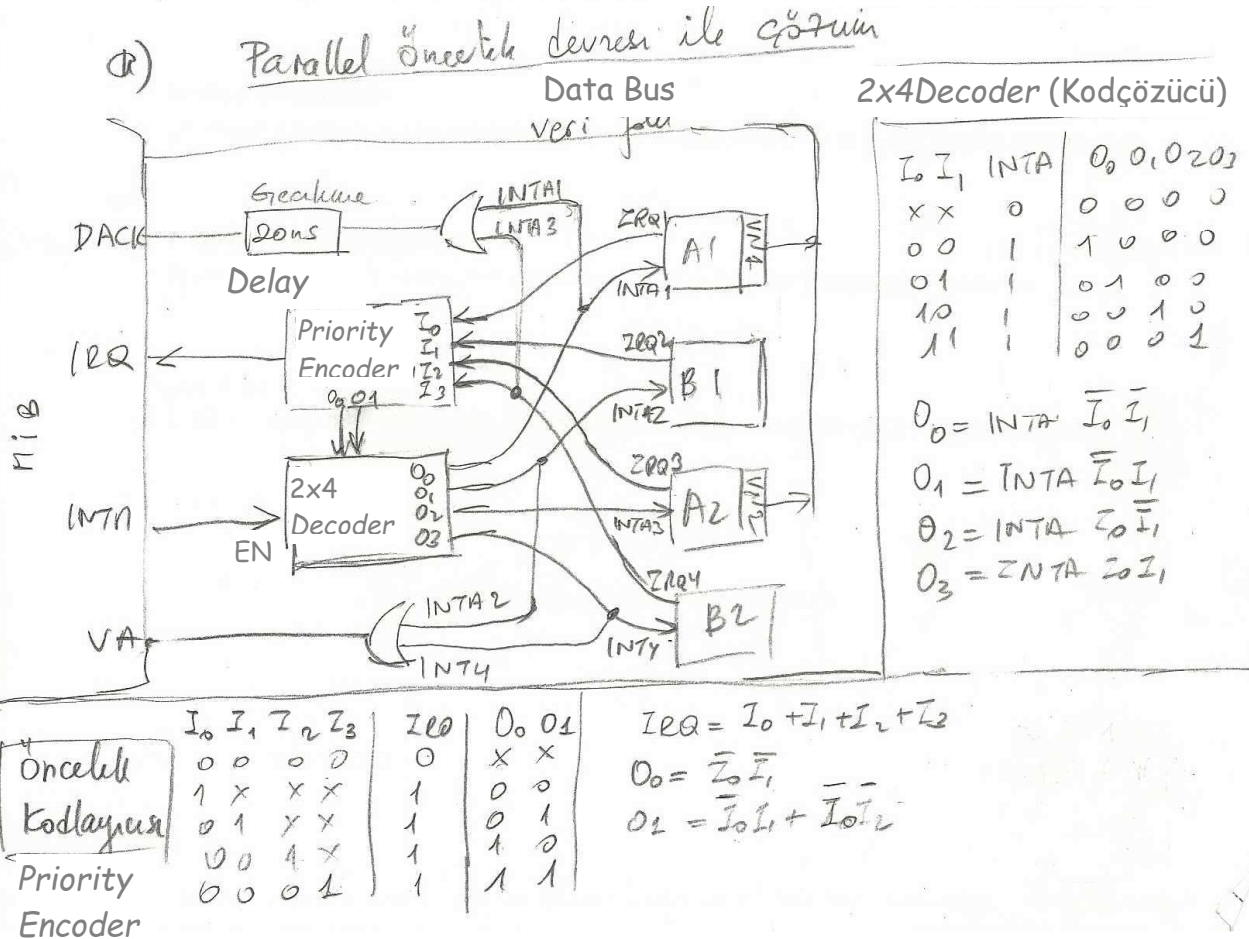 a) Parallel öncelik devresi ile çözüm
Data Bus
veri yolu
2x4Decoder (Kodçözücü)
Gecikme
20ns
Delay
INTA1
INTA3
DACK
IRQ
MİB
INTA
VA
Priority
Encoder
I0
I1
I2
I3
O0 O1
2x4
Decoder
EN
O0
O1
O2
O3
IRQ
A1
VN1
INTA1
IRQ2
B1
INTA2
IRQ3
A2
VN2
INTA3
IRQ4
B2
INT4
INTA2
INT4
I0 I1 INTA O0 O1 O2 O3
x x 0 0 0 0 0
0 0 1 1 0 0 0
0 1 1 0 1 0 0
1 0 1 0 0 1 0
1 1 1 0 0 0 1
O0 = INTA I̅0 I̅1
O1 = INTA I̅0 I1
O2 = INTA I0 I̅1
O3 = INTA I0 I1
Öncelik
Kodlayıcısı
Priority
Encoder
I0 I1 I2 I3 IRQ O0 O1
0 0 0 0 0 x x
1 x x x 1 0 0
0 1 x x 1 0 1
0 0 1 x 1 1 0
0 0 0 1 1 1 1
IRQ = I0 + I1 + I2 + I3
O0 = I̅0 I̅1
O1 = I̅0 I1 + I̅0 I̅2